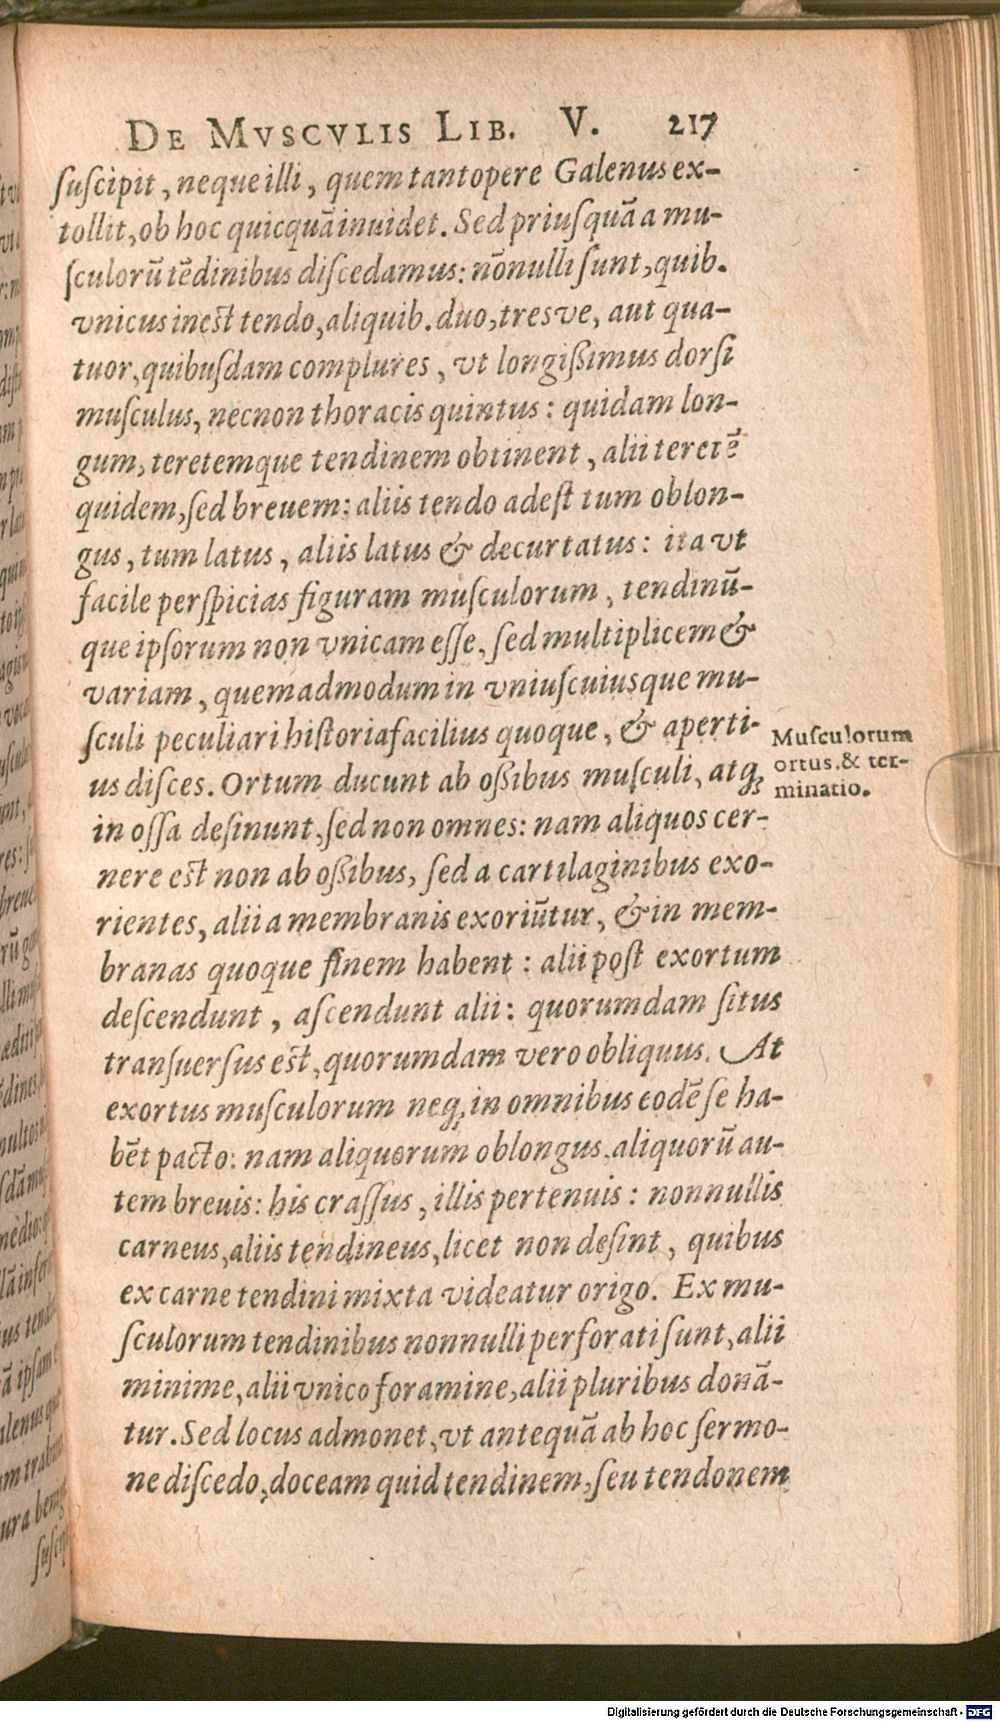 DE MVSCVLIS LIB. V. 217
ſuſcipit, neque illi, quem tantopere Galenus ex-
tollit, ob hoc quicquā inuidet. Sed priuſquā a mu-
ſculorū tēdinibus diſcedamus: nōnulli ſunt, quib.
vnicus ineſt tendo, aliquib. duo, tresve, aut qua-
tuor, quibuſdam complures, vt longiſsimus dorſi
muſculus, necnon thoracis quintus: quidam lon-
gum, teretemque tendinem obtinent, alii teretē
quidem, ſed breuem: aliis tendo adeſt tum oblon-
gus, tum latus, aliis latus & decurtatus: ita vt
facile perſpicias figuram muſculorum, tendinū-
que ipſorum non vnicam eſſe, ſed multiplicem &
variam, quemadmodum in vniuſcuiusque mu-
ſculi peculiari hiſtoria facilius quoque, & aperti-
us diſces. Ortum ducunt ab oſsibus muſculi, atq;
Muſculorum
ortus, & ter-
minatio.
in oſſa deſinunt, ſed non omnes: nam aliquos cer-
nere eſt non ab oſsibus, ſed a cartilaginibus exo-
rientes, alii a membranis exoriūtur, & in mem-
branas quoque finem habent: alii poſt exortum
deſcendunt, aſcendunt alii: quorumdam ſitus
tranſuerſus eſt, quorumdam vero obliquus. At
exortus muſculorum neq; in omnibus eodē ſe ha-
bēt pacto: nam aliquorum oblongus, aliquorū au-
tem breuis: his craſſus, illis pertenuis: nonnullis
carneus, aliis tendineus, licet non deſint, quibus
ex carne tendini mixta videatur origo. Ex mu-
ſculorum tendinibus nonnulli perforati ſunt, alii
minime, alii vnico foramine, alii pluribus donā-
tur. Sed locus admonet, vt antequā ab hoc ſermo-
ne diſcedo, doceam quid tendinem, ſeu tendonem
Digitalisierung gefördert durch die Deutsche Forschungsgemeinschaft - DFG